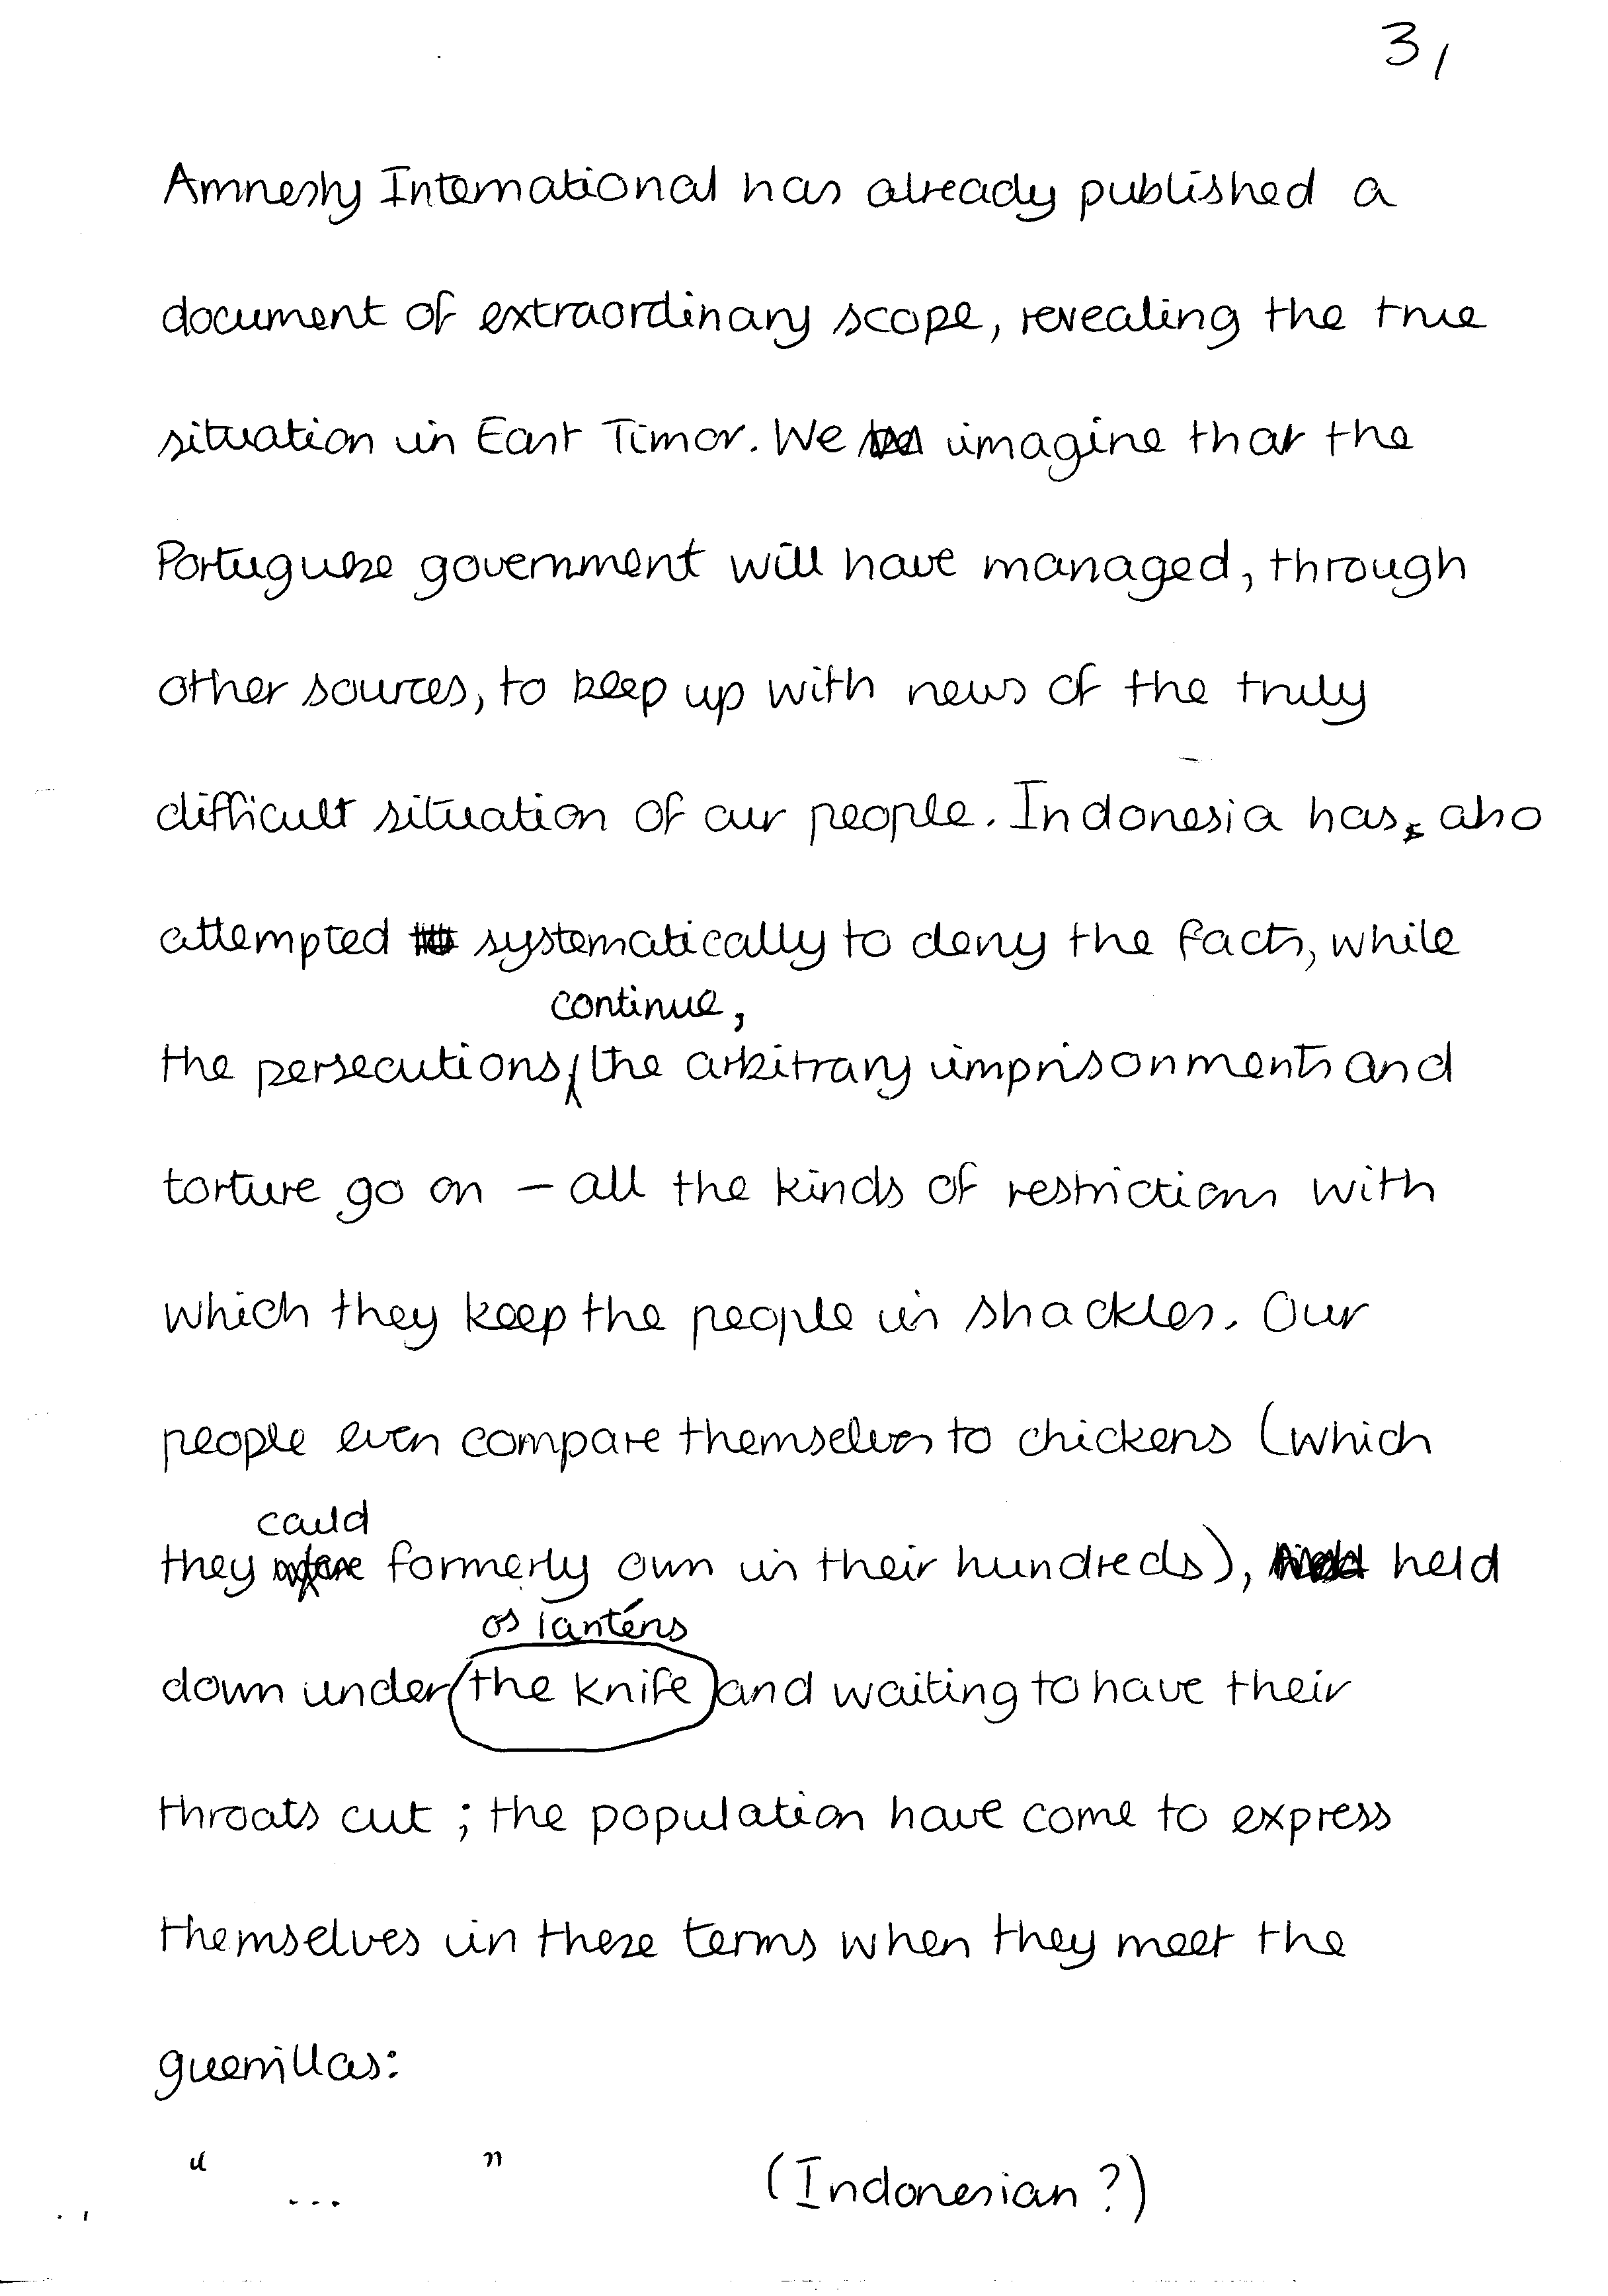 3/
Amnesty International has already published a
document of extraordinary scope, revealing the true
situation in East Timor. We imagine that the
Portuguese government will have managed, through
other sources, to keep up with news of the truly
difficult situation of our people. Indonesia has, also
attempted systematically to deny the facts, while
continue,
the persecutions, the arbitrary imprisonments and
torture go on – all the kinds of restrictions with
which they keep the people in shackles. Our
people even compare themselves to chickens (which
could
they formerly own in their hundreds), held
os lanténs
down under (the knife) and waiting to have their
throats cut ; the population have come to express
themselves in these terms when they meet the
guerrillas:
" ... " (Indonesian ?)